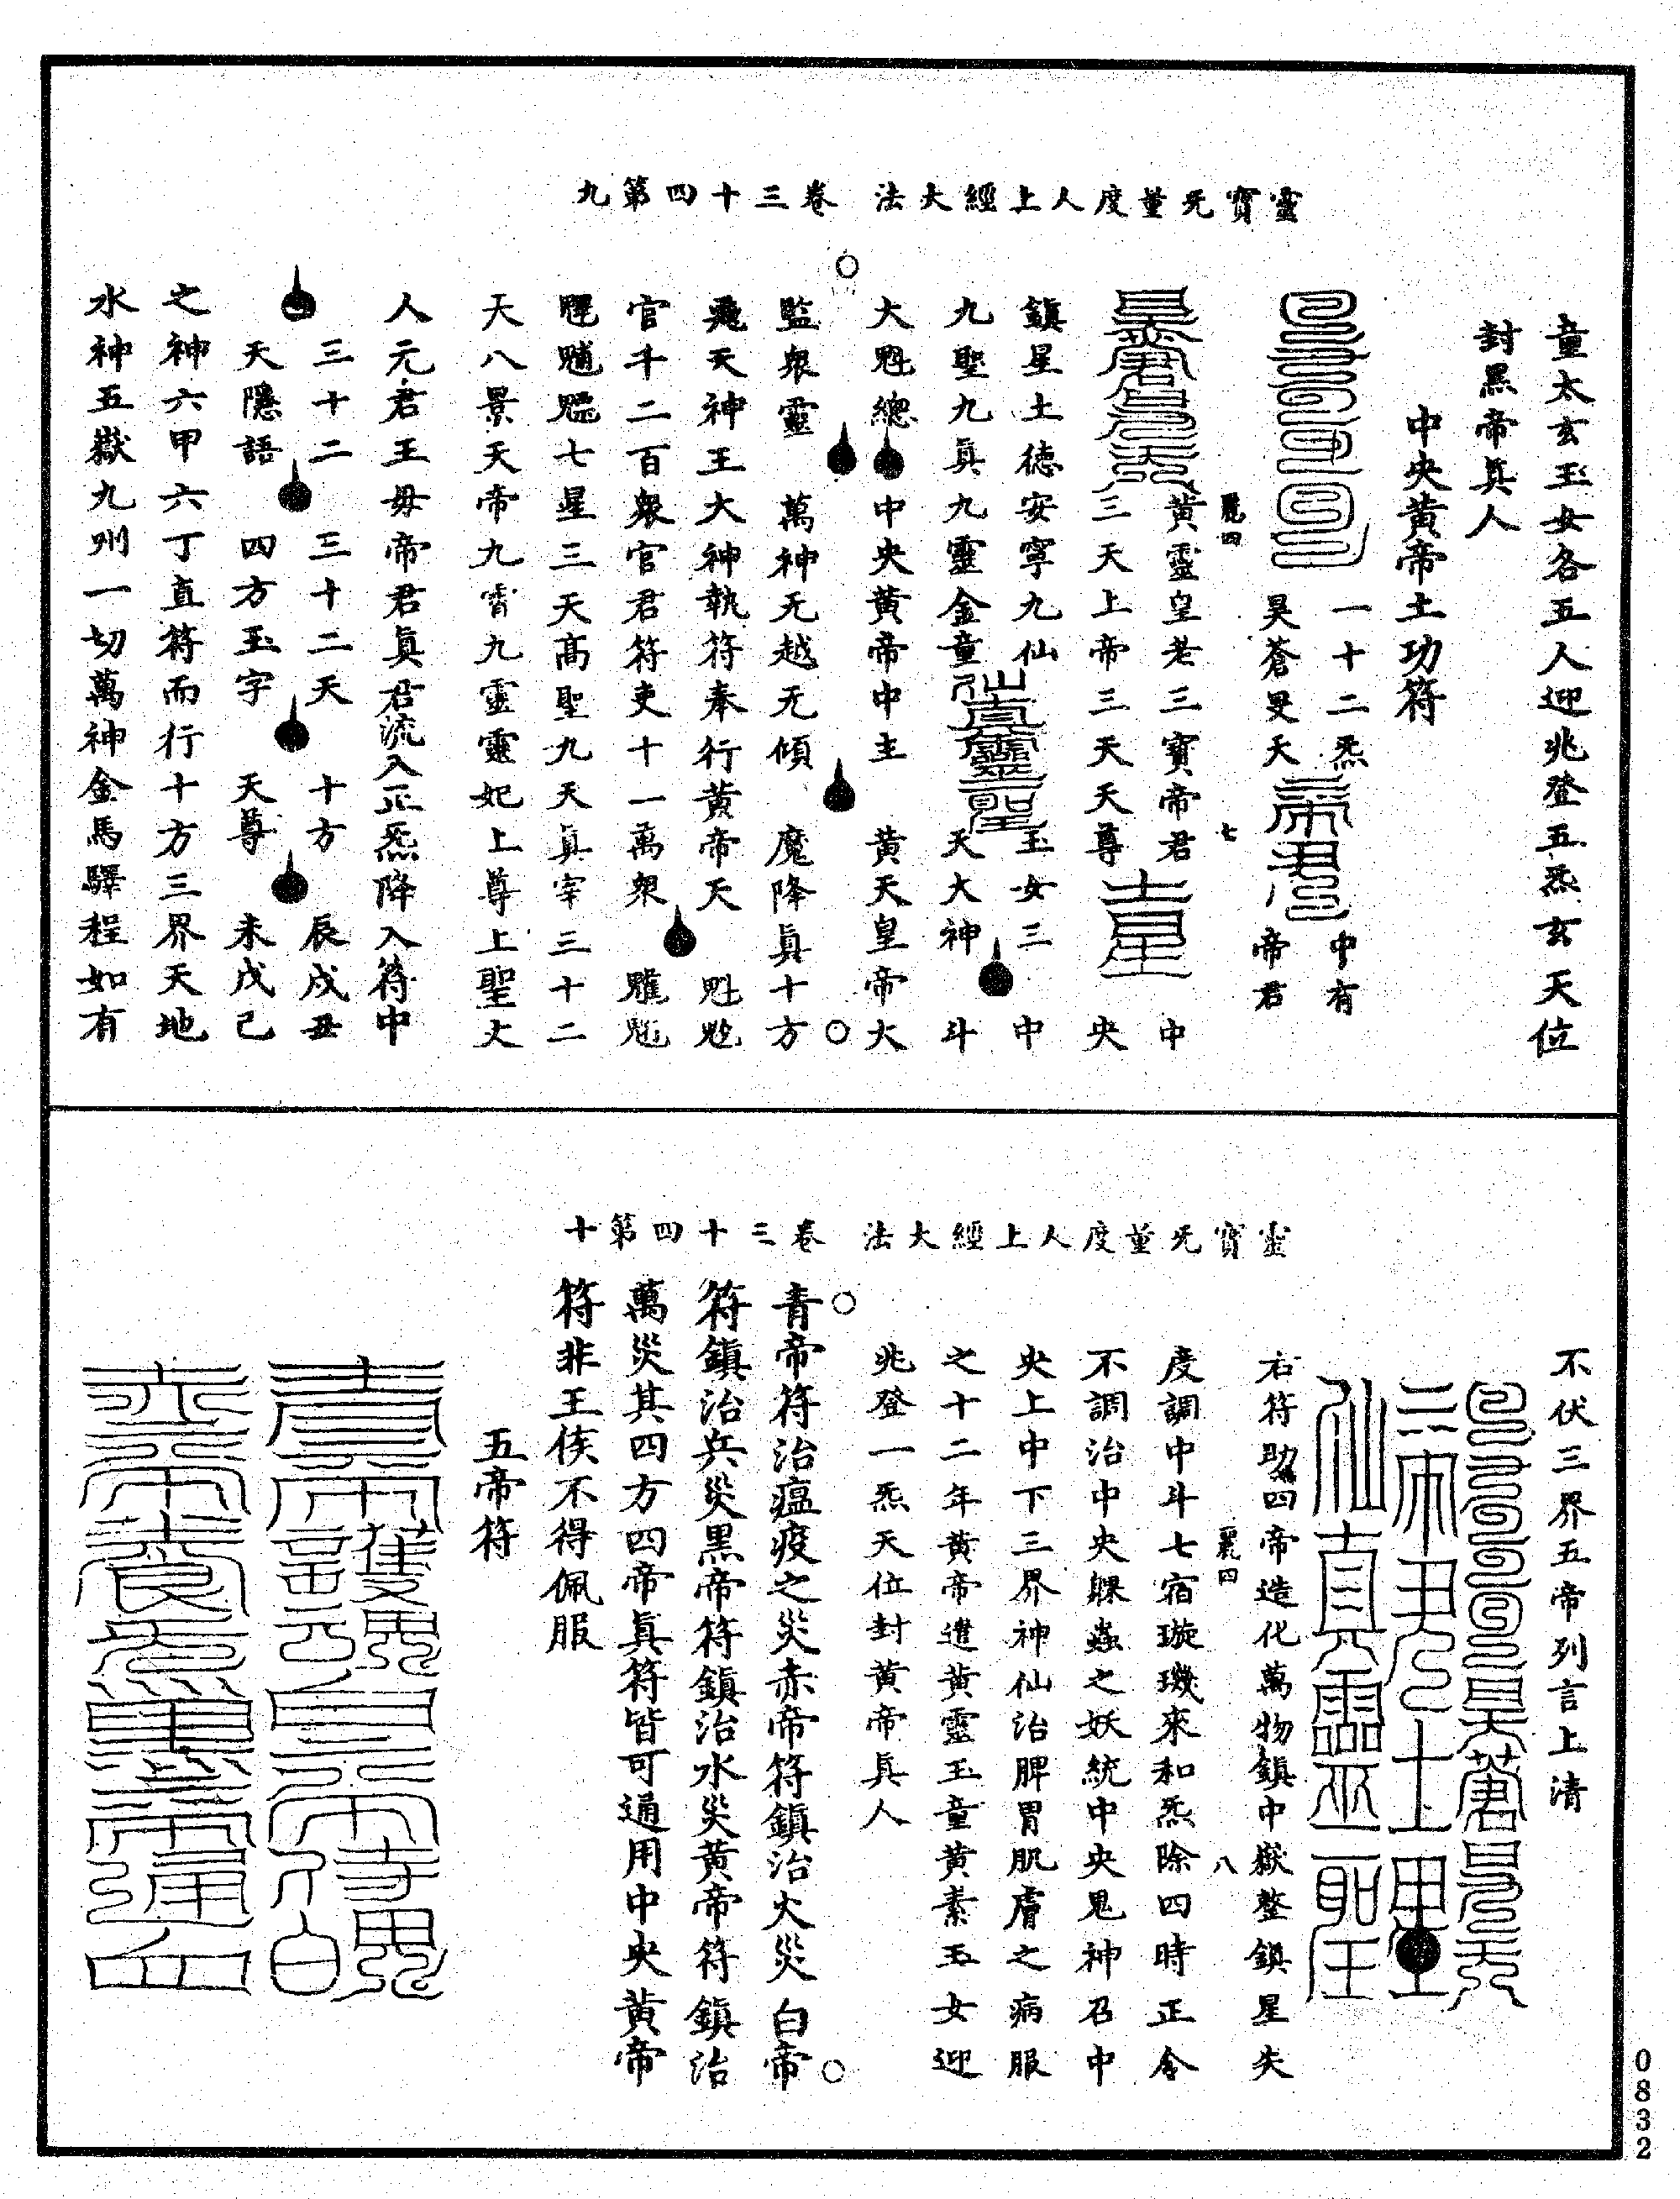 靈寶无量度人上經大法 卷三十四第九
童太玄玉女各五人迎兆登五炁玄天位
封黑帝真人
中央黄帝土功符
一十二炁 中有
昊蒼旻天 帝君
麗四 七
黄靈皇老三寳帝君 中
三天上帝三天天尊 土星 央
鎮星土德安寜九仙 玉女三 中
九聖九真九靈金童 天大神 斗
大魁總 中央黄帝中主 黄天皇帝大
監衆靈 萬神无越无傾 魔降真十方
飛天神王大神執符奉行黄帝天 魁
官千二百衆官君符吏十一萬衆
七星三天髙聖九天真宰三十二
天八景天帝九霄九靈靈妃上尊上聖丈
人元君王毋帝君真君流入正炁降入符中
三十二 三十二天 十方 辰戌丑
天隱語 四方玉字 天尊 未戊己
之神六甲六丁直符而行十方三界天地
水神五嶽九州一切萬神金馬驛程如有
靈寶无量度人上經大法 卷三十四第十
不伏三界五帝列言上清
右符助四帝造化萬物鎮中嶽整鎮星失
麗四 八
度調中斗七宿璇璣來和炁除四時正令
不調治中央躶蟲之妖統中央鬼神召中
央上中下三界神仙治脾胃肌膚之病服
之十二年黄帝遣黄靈玉童黄素玉女迎
兆登一炁天位封黄帝真人
青帝符治瘟疫之災赤帝符鎮治火災白帝
符鎮治兵災黑帝符鎮治水災黄帝符鎮治
萬災其四方四帝真符皆可通用中央黄帝
符非王侯不得佩服
五帝符
0832